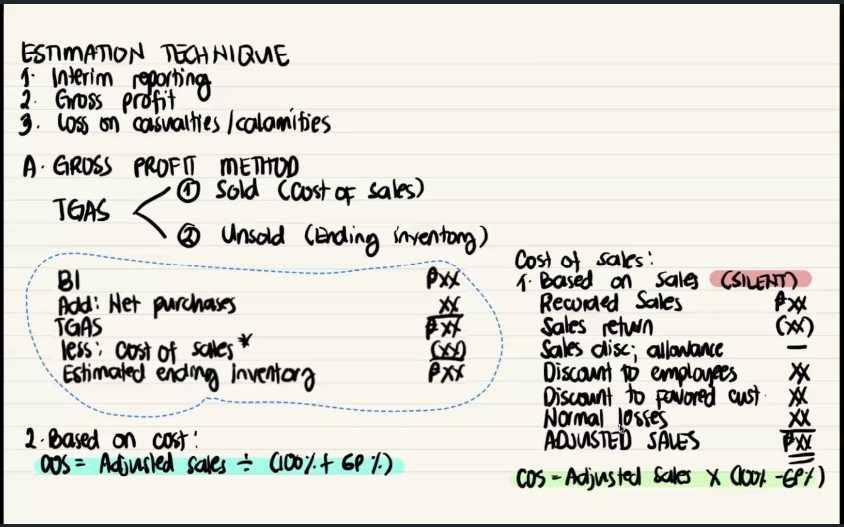 ESTIMATION TECHNIQUE
1. Interim reporting
2. Gross profit
3. Loss on casualties/calamities
A. GROSS PROFIT METHOD
TGAS
① Sold (Cost of sales)
② Unsold (Ending inventory)
BI ₱XX
Add: Net purchases XX
TGAS ₱XX
less: Cost of sales* (XX)
Estimated ending inventory ₱XX
2. Based on cost:
COS = Adjusted sales ÷ (100% + GP%)
Cost of sales:
1. Based on sales (SILENT)
Recorded Sales ₱XX
Sales return (XX)
Sales disc; allowance —
Discount to employees XX
Discount to favored cust. XX
Normal losses XX
ADJUSTED SALES ₱XX
COS = Adjusted Sales X (100% - GP%)